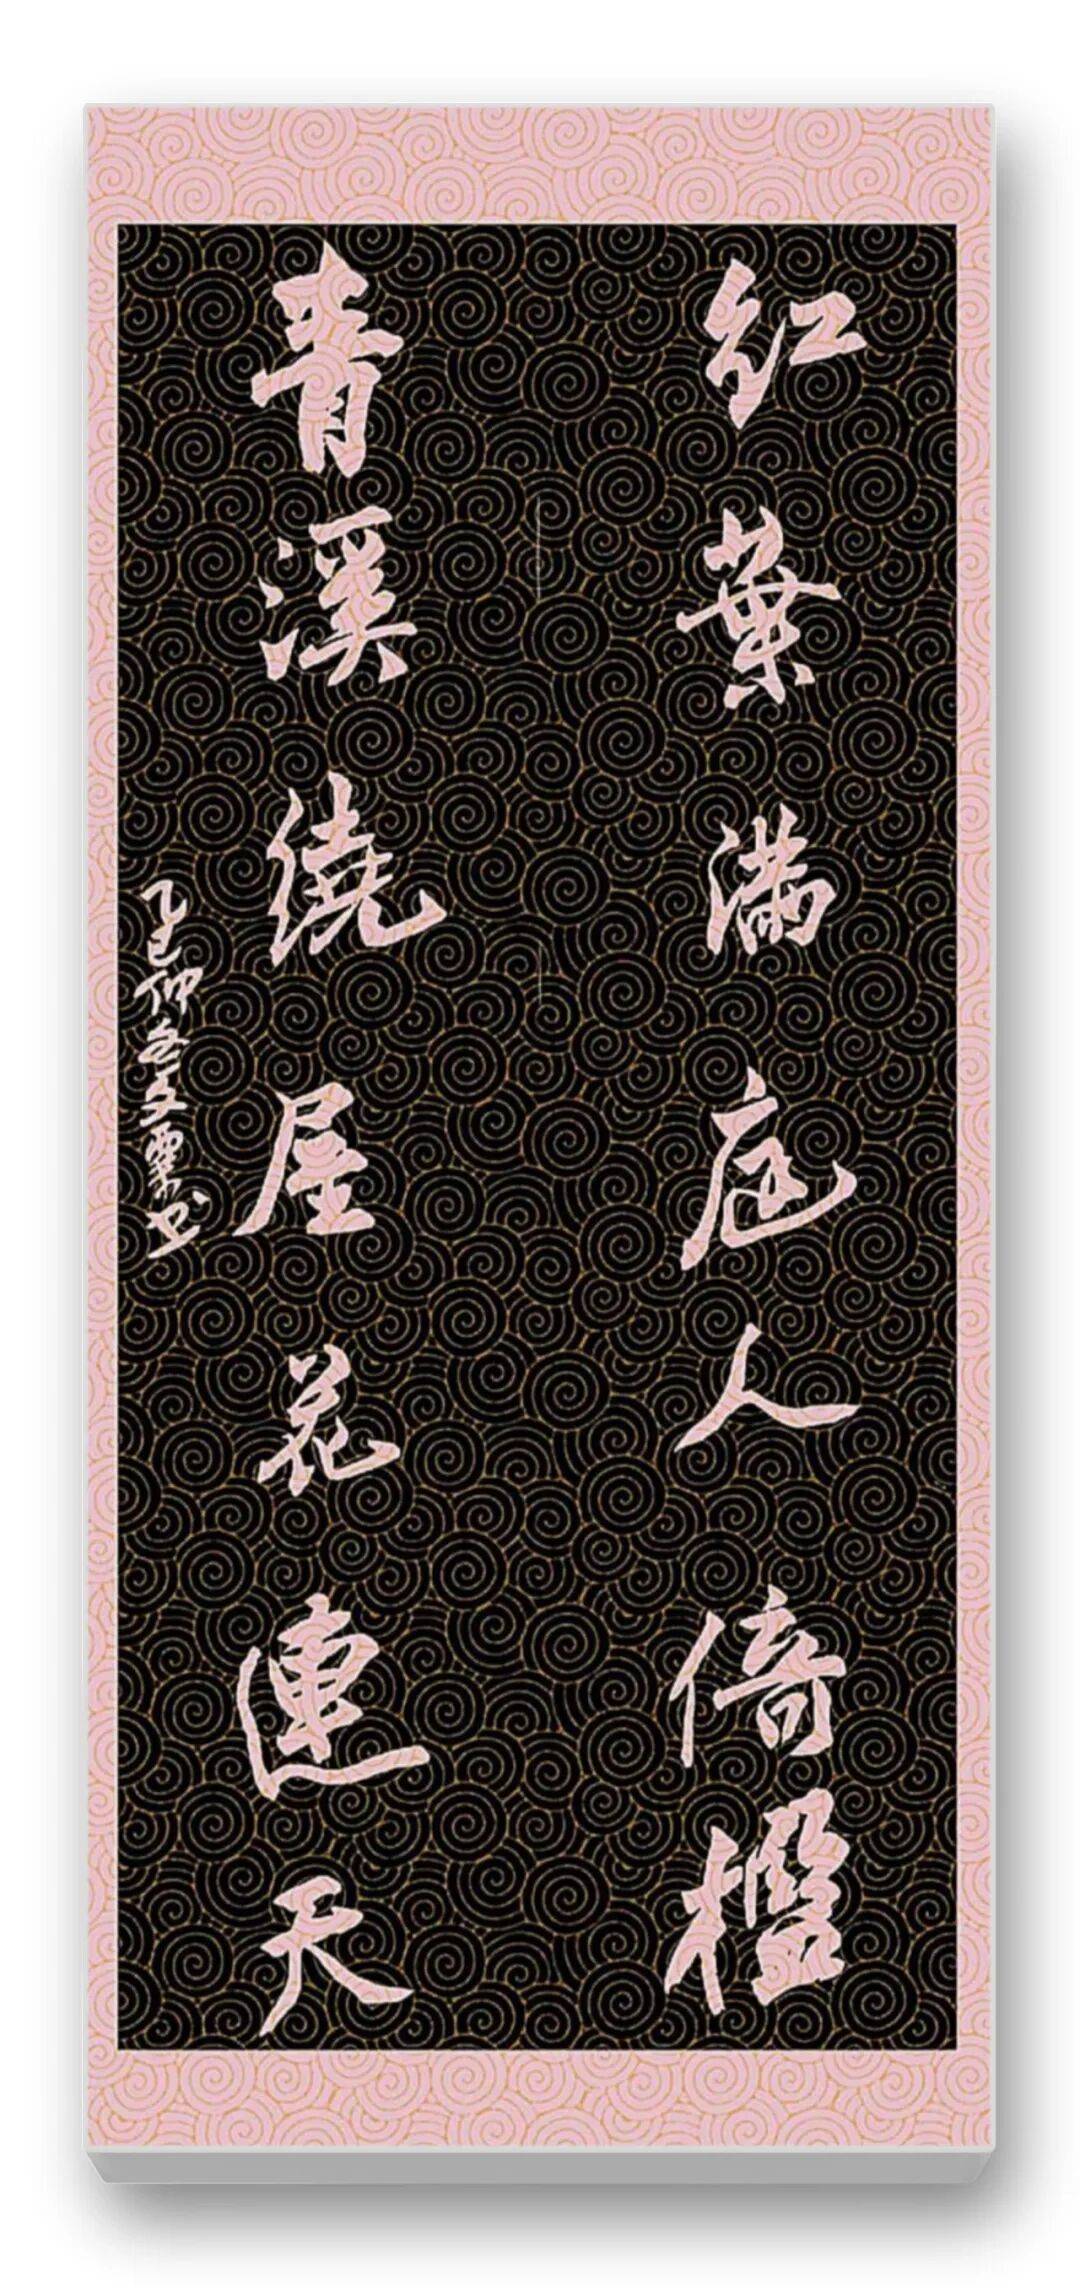 红葉满庭人倚檻
青溪繞屋花連天
乙巳仲冬文栗书